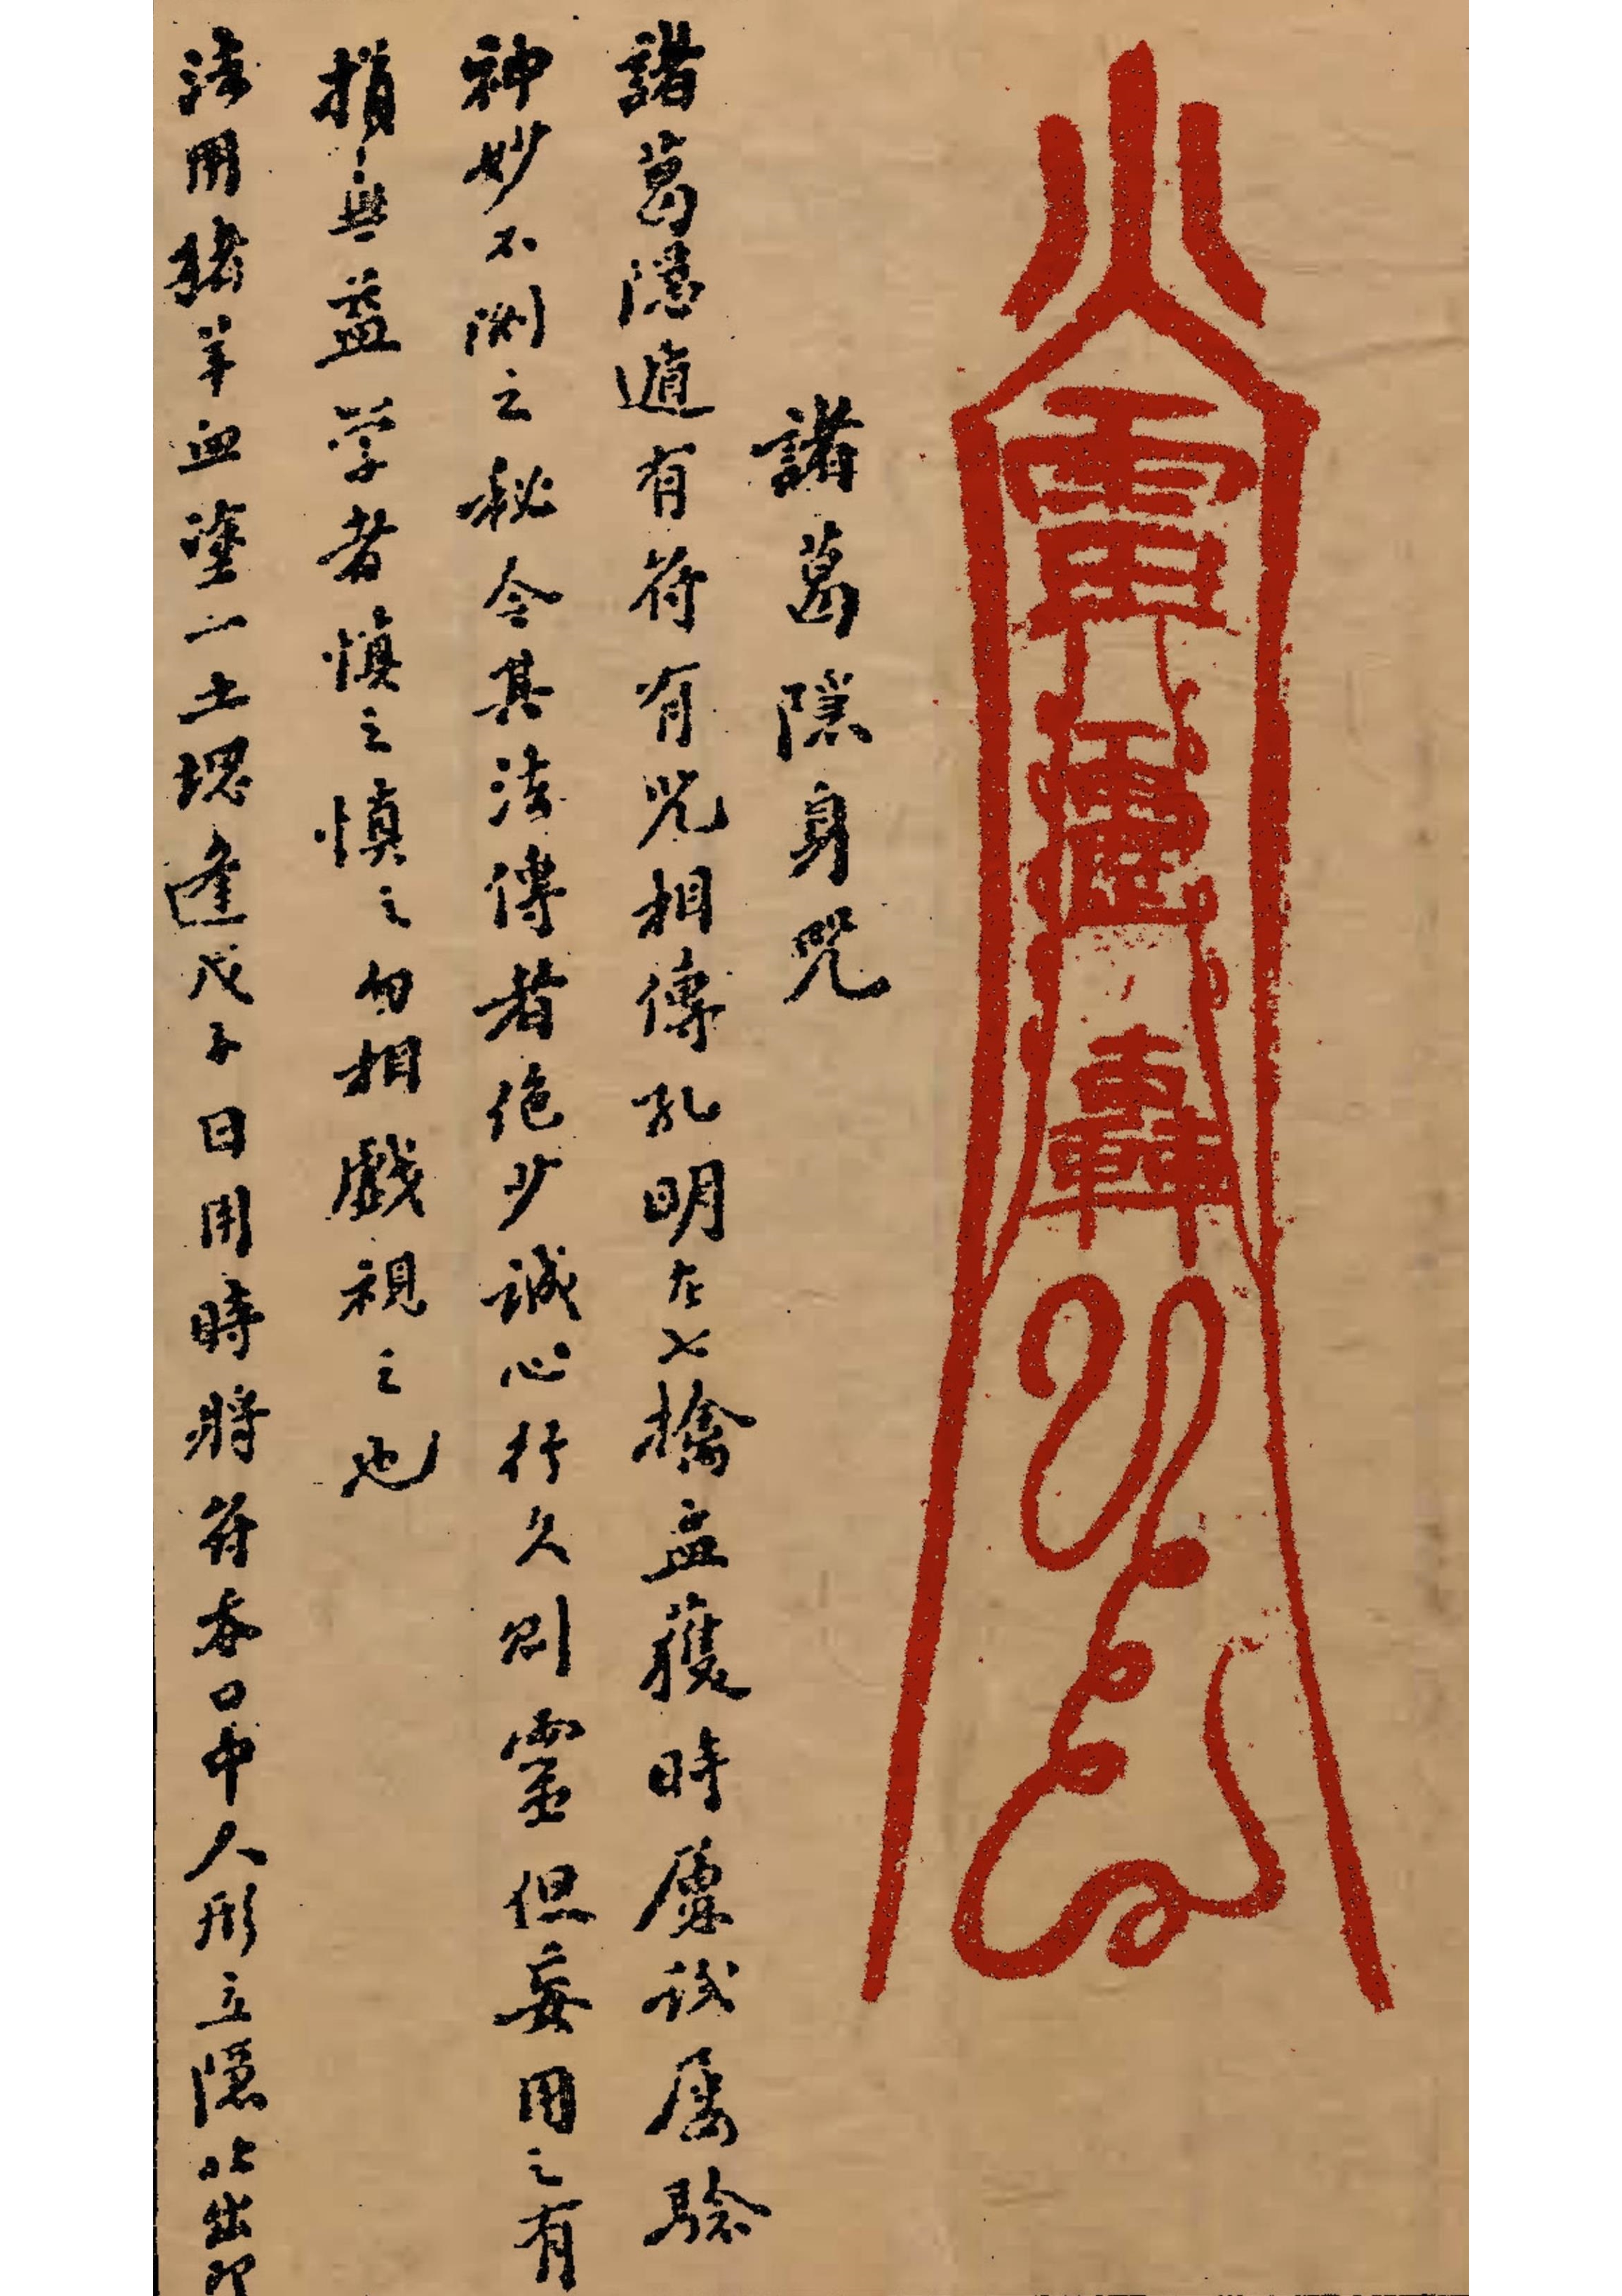 諸葛隱身咒
諸葛隱遁有符有咒相傳孔明在七擒孟獲時屢試屢驗
神妙不測之秘今其法傳者絶少誠心行久則靈但妄用之有
損無益学者慎之慎之勿相戲視之也
法用猪羊血塗一土塊逢戊子日用時將符吞口中人形立隱吐出即